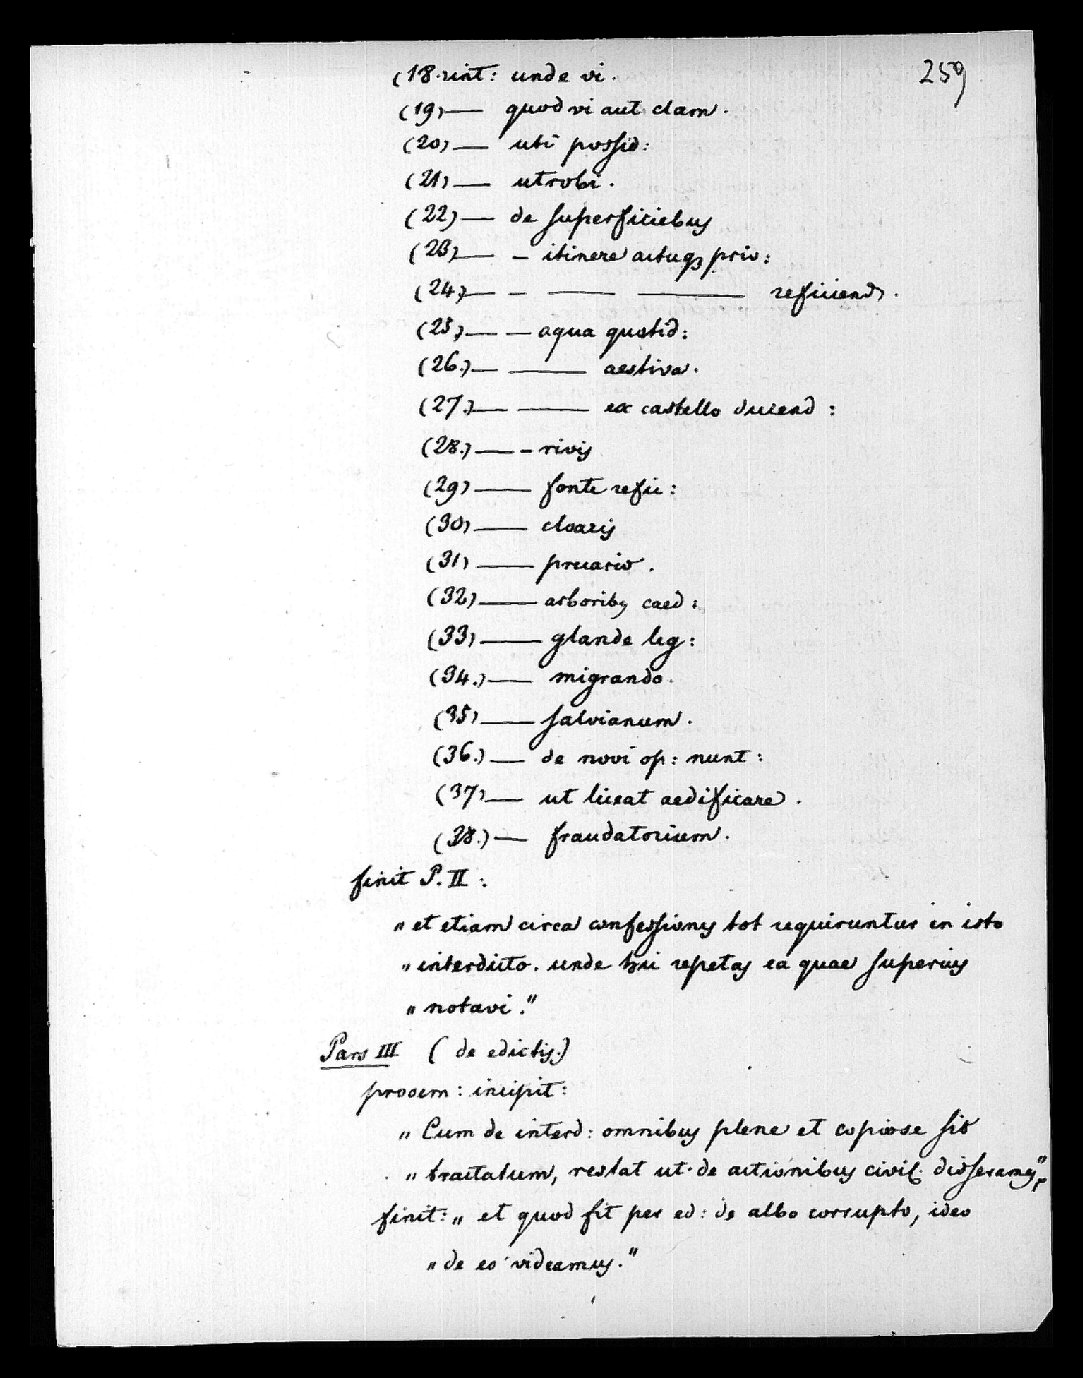 259
(18. int: unde vi.
(19) — quod vi aut clam.
(20) — uti possid:
(21) — utrobi.
(22) — de superficiebus
(23) — – itinere actuq3 priv:
(24) — – — — reficiend.
(25) — — aqua quotid:
(26.) — — aestiva.
(27.) — — ex castello ducend:
(28.) — – rivis
(29) — fonte refic:
(30) — cloacis
(31) — precario.
(32) — arboribus caed:
(33) — glande leg:
(34.) — migrando.
(35) — salvianum.
(36.) — de novi op: nunt:
(37) — ut liceat aedificare.
(38.) — fraudatorium.
finit P. II:
„et etiam circa confessiones tot requiruntur in isto
„interdicto. unde tui repetas ea quae superius
„notavi."
Pars III (de edictis.)
prooem: incipit:
„Cum de interd: omnibus plene et copiose sit
„tractatum, restat ut de actionibus civil. disseramus",
finit: „et quod fit per ed: de albo corrupto, ideo
„de eo videamus."